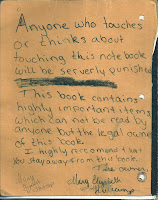 Anyone who touches
or thinks about
touching this notebook
will be serverly punished
This book contains
highly important items
which can not be read by
anyone but the legal owner
of this book.
I highly reccomend that
you stay away from this book.
The owner,
Mary Elizabeth